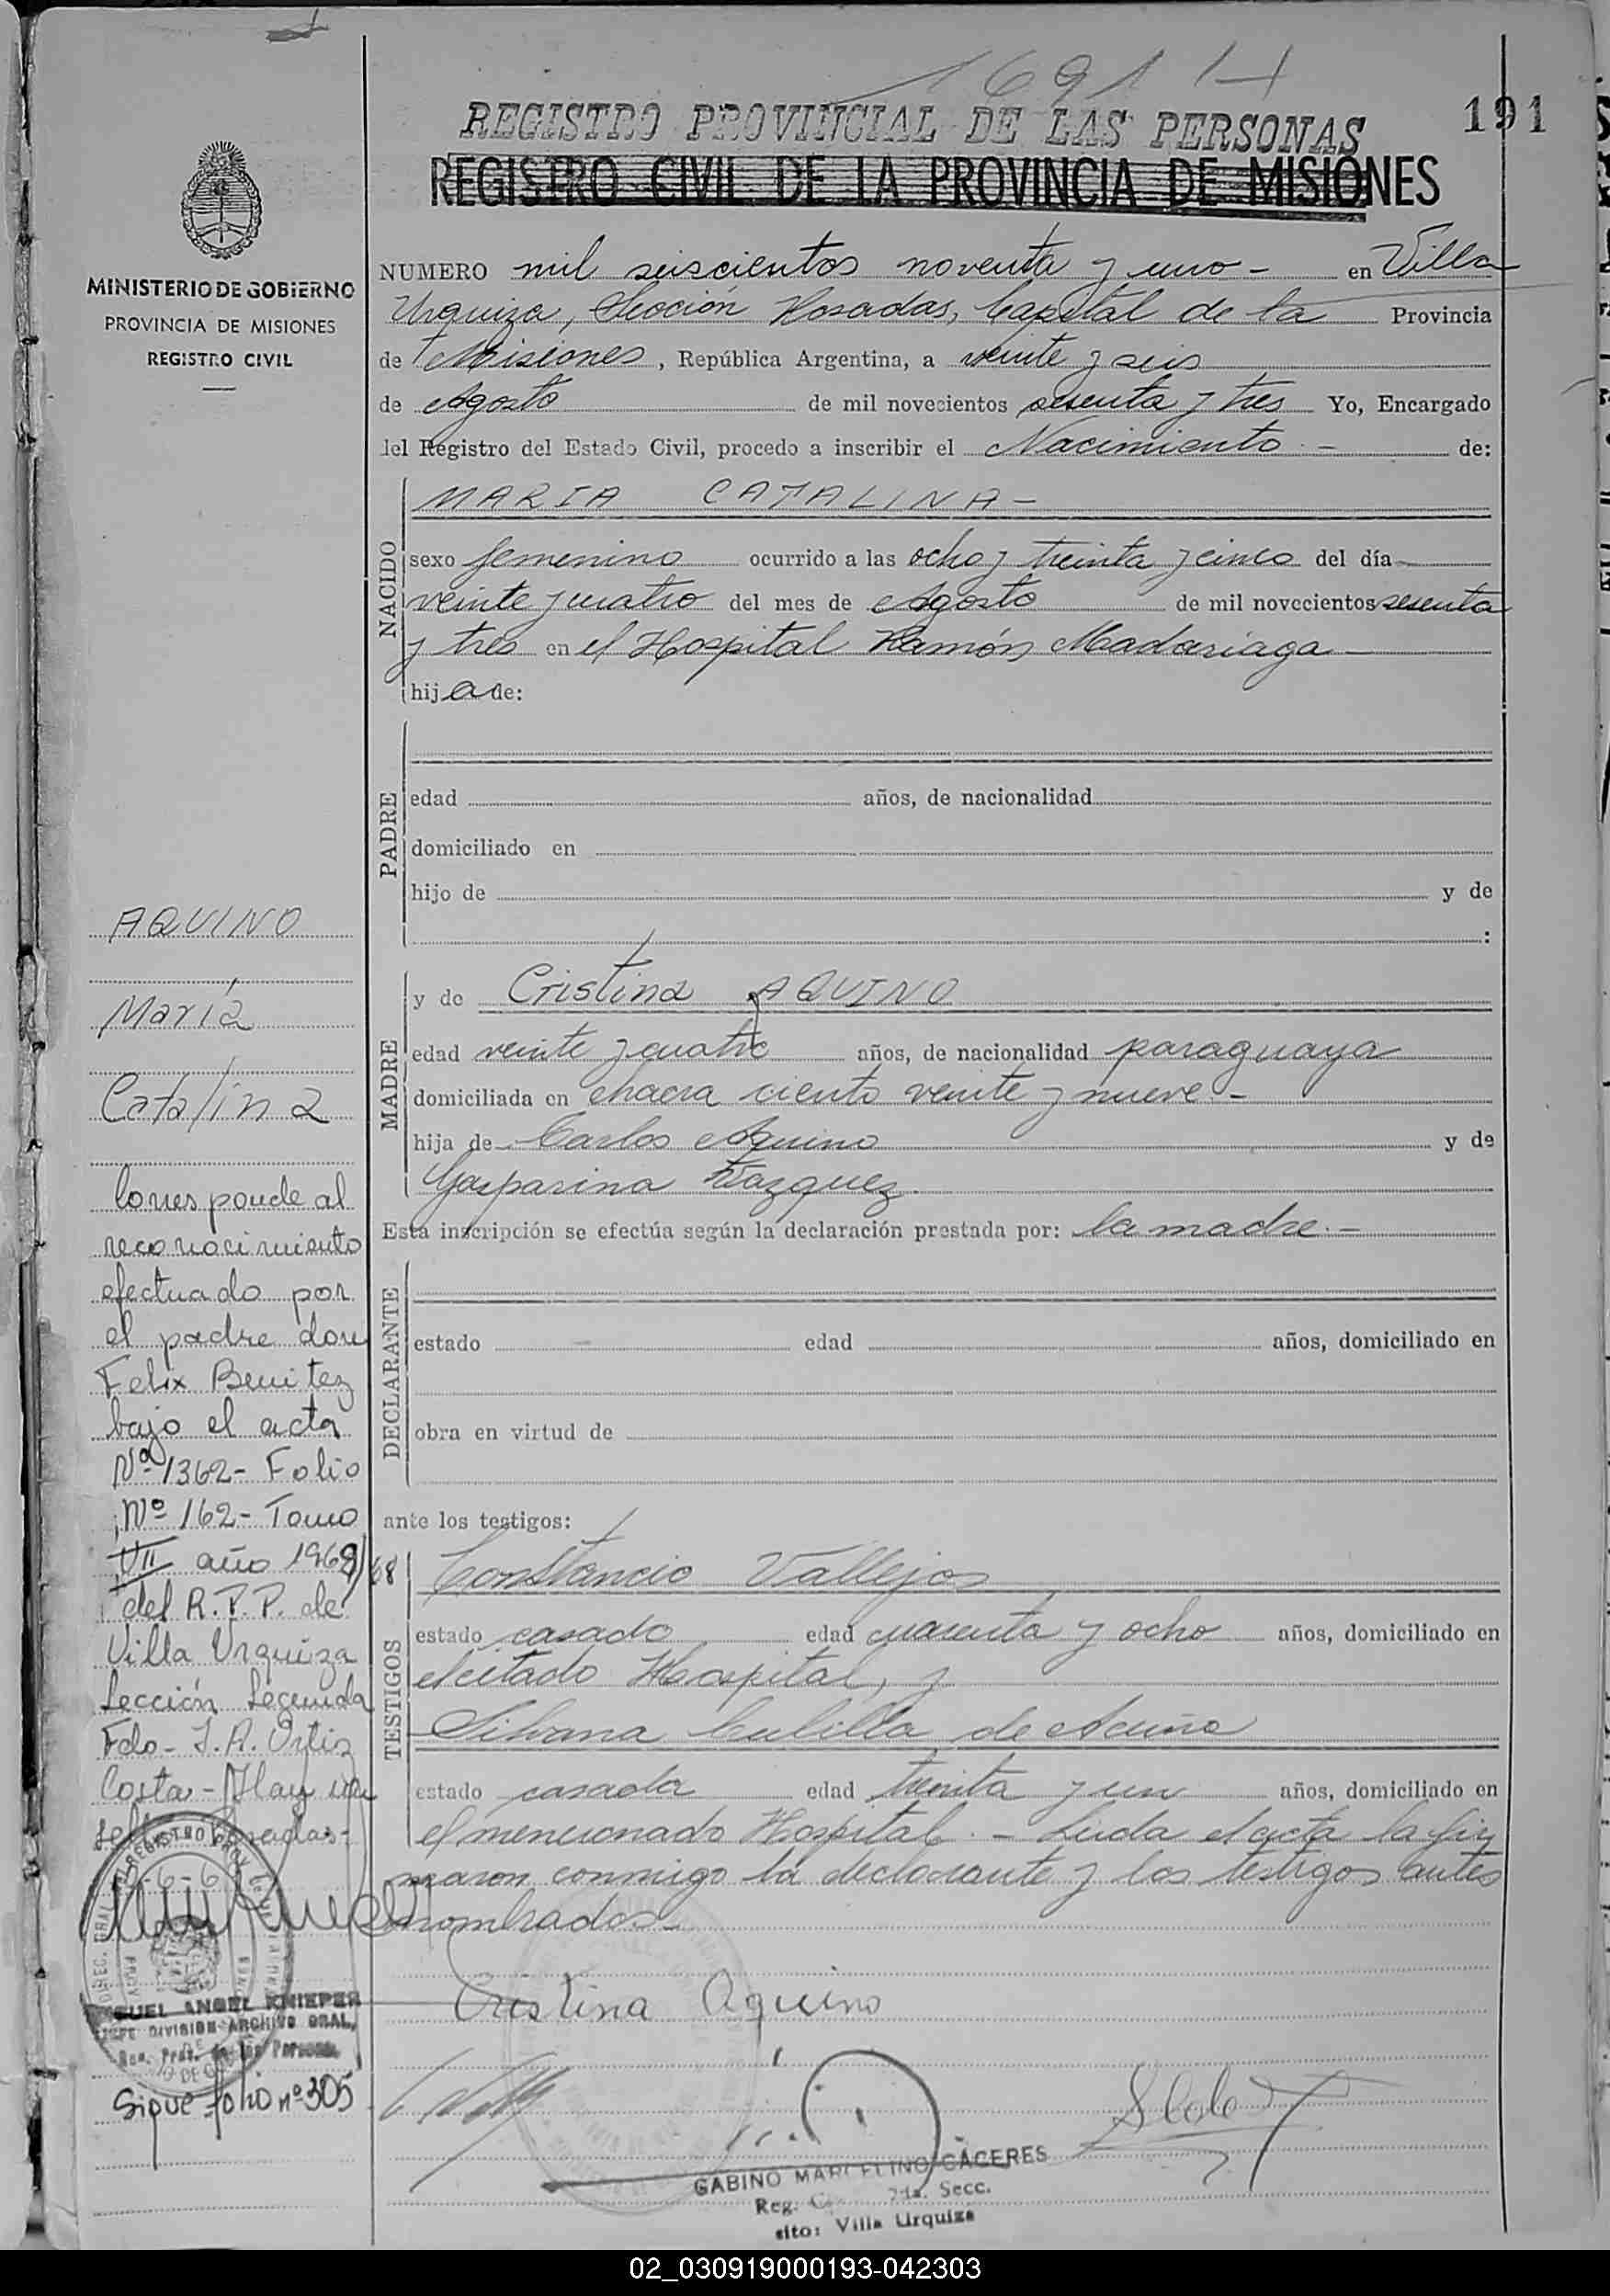 1691
191
REGISTRO PROVINCIAL DE LAS PERSONAS
REGISTRO CIVIL DE LA PROVINCIA DE MISIONES
MINISTERIO DE GOBIERNO
PROVINCIA DE MISIONES
REGISTRO CIVIL
NUMERO mil seiscientos noventa y uno - en Villa
Urquiza, Sección Posadas, Capital de la Provincia
de Misiones, República Argentina, a veinte y seis
de Agosto de mil novecientos sesenta y tres Yo, Encargado
del Registro del Estado Civil, procedo a inscribir el Nacimiento - de:
NACIDO
MARIA CATALINA-
sexo femenino ocurrido a las ocho y treinta y cinco del día
veinte y cuatro del mes de Agosto de mil novecientos sesenta
y tres en el Hospital Ramón Madariaga
hija de:
PADRE
edad años, de nacionalidad
domiciliado en
hijo de y de
:
MADRE
y de Cristina AQUINO
edad veinte y cuatro años, de nacionalidad paraguaya
domiciliada en chacra ciento veinte y nueve.-
hija de Carlos Aquino y de
Gasparina Vazquez.
Esta inscripción se efectúa según la declaración prestada por: la madre.-
DECLARANTE
estado edad años, domiciliado en
obra en virtud de
ante los testigos:
TESTIGOS
Constancio Vallejos
estado casado edad cuarenta y ocho años, domiciliado en
el citado Hospital, y
Silvana Cubilla de Acuña
estado casada edad treinta y un años, domiciliado en
el mencionado Hospital.- Leida el acta la fir
maron conmigo la declarante y los testigos antes
nombrados-
Cristina Aquino
GABINO MARCELINO CÁCERES
Reg. Secc.
sito: Villa Urquiza
AQUINO
María
Catalina
Corresponde al
reconocimiento
efectuado por
el padre don
Felix Benitez
bajo el acta
Nº 1362- Folio
Nº 162- Tomo
VII año 1968/68
del R.P.P. de
Villa Urquiza
Sección Segunda
Fdo- J.A. Ortiz
Costa- Hay un
sello Posadas-
MIGUEL ANGEL KNIEPER
JEFE DIVISION ARCHIVO GRAL.
Reg. Prov. de las Personas
Sigue folio nº 305
02_030919000193-042303